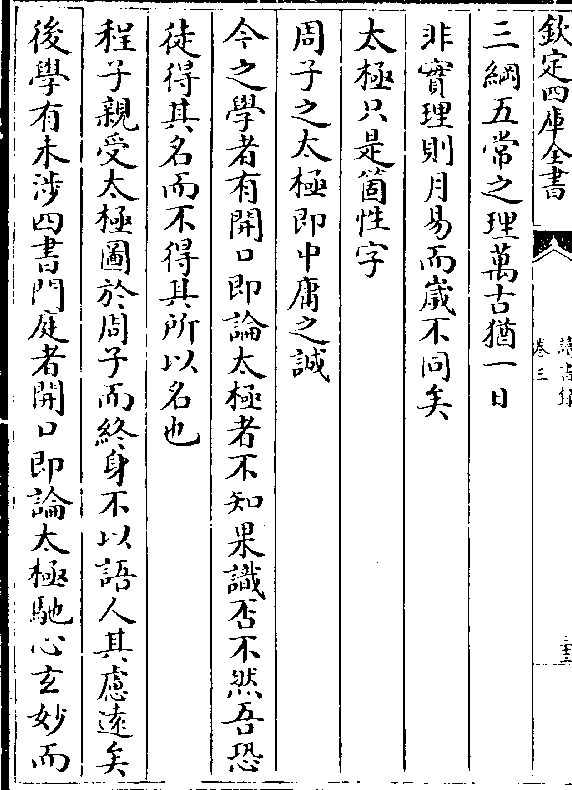 欽定四庫全書
讀書錄
卷三
三綱五常之理萬古猶一日
非實理則月易而嵗不同矣
太極只是箇性字
周子之太極即中庸之誠
今之學者有開口即論太極者不知果識否不然吾恐
徒得其名而不得其所以名也
程子親受太極圖於周子而終身不以語人其慮遠矣
後學有未涉四書門庭者開口即論太極馳心玄妙而